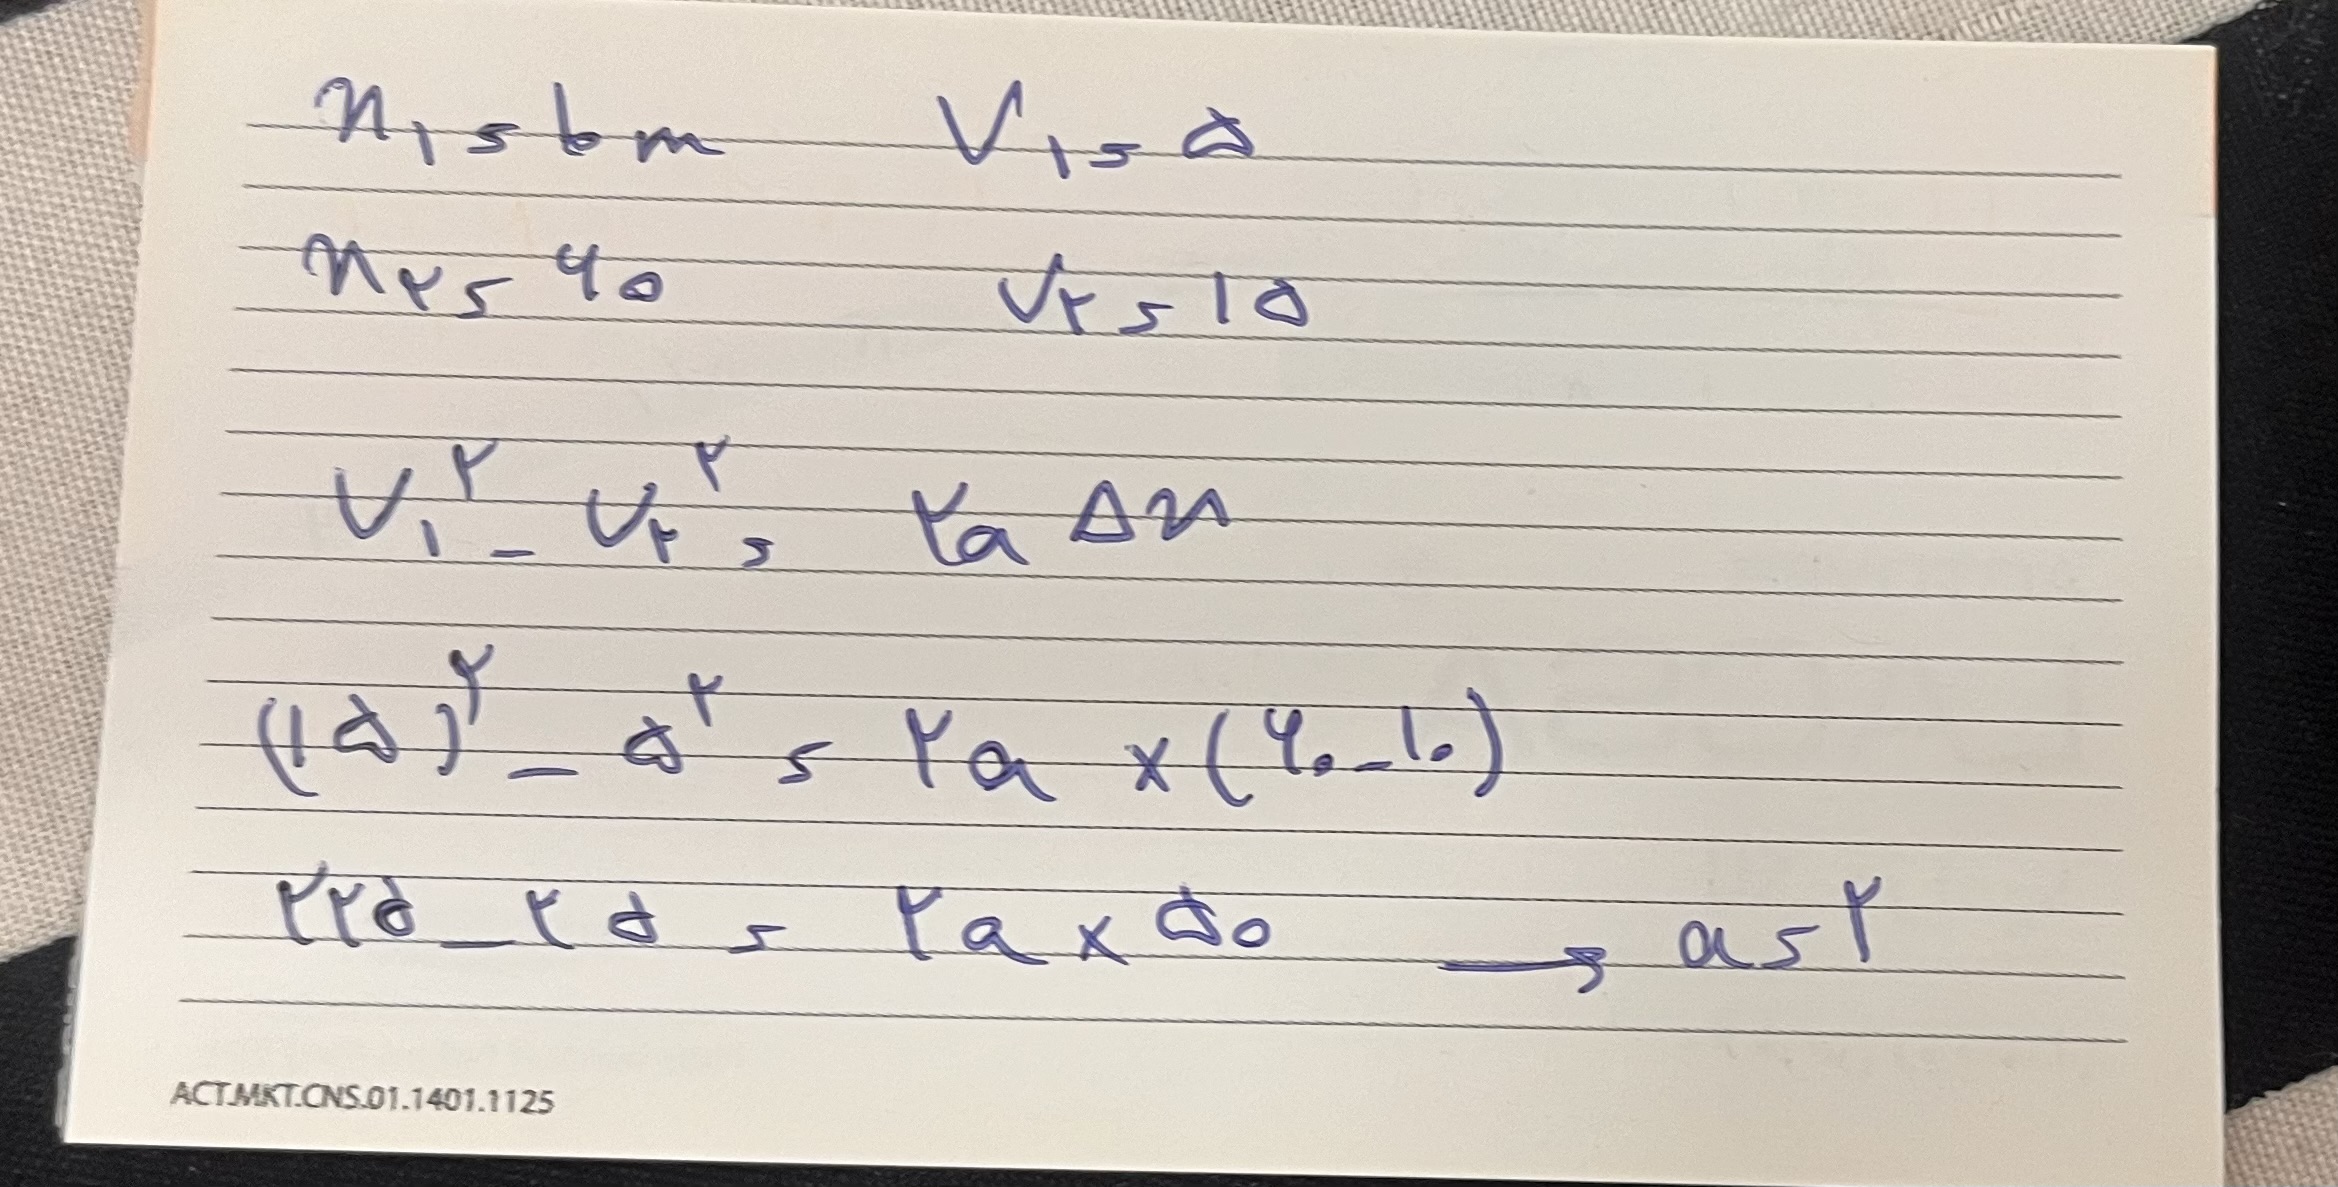 x₁ = 10 m V₁ = ۵
x₂ = ۶۰ V₂ = ۱۵
V₁² - V₂² = ۲a Δx
(۱۵)² - ۵² = ۲a × (۶۰ - ۱۰)
۲۲۵ - ۲۵ = ۲a × ۵۰ → a = ۲
ACT.MKT.CNS.01.1401.1125